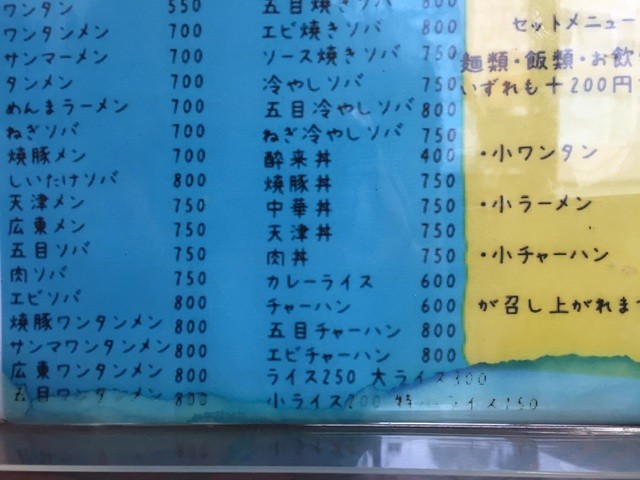 ワンタン 550
ワンタンメン 700
サンマーメン 700
タンメン 700
めんまラーメン 700
ねぎソバ 700
焼豚メン 700
しいたけソバ 800
天津メン 750
広東メン 750
五目ソバ 750
肉ソバ 750
エビソバ 800
焼豚ワンタンメン 800
サンマワンタンメン 800
広東ワンタンメン 800
五目ワンタンメン 800
五目焼きソバ 800
エビ焼きソバ 800
ソース焼きソバ 750
冷やしソバ 750
五目冷やしソバ 800
ねぎ冷やしソバ 750
酔来丼 400
焼豚丼 750
中華丼 750
天津丼 750
肉丼 750
カレーライス 600
チャーハン 600
五目チャーハン 800
エビチャーハン 800
ライス250 大ライス300
小ライス200 ライス150
セットメニュー
麺類・飯類・お飲
いずれも+200円
・小ワンタン
・小ラーメン
・小チャーハン
が召し上がれま